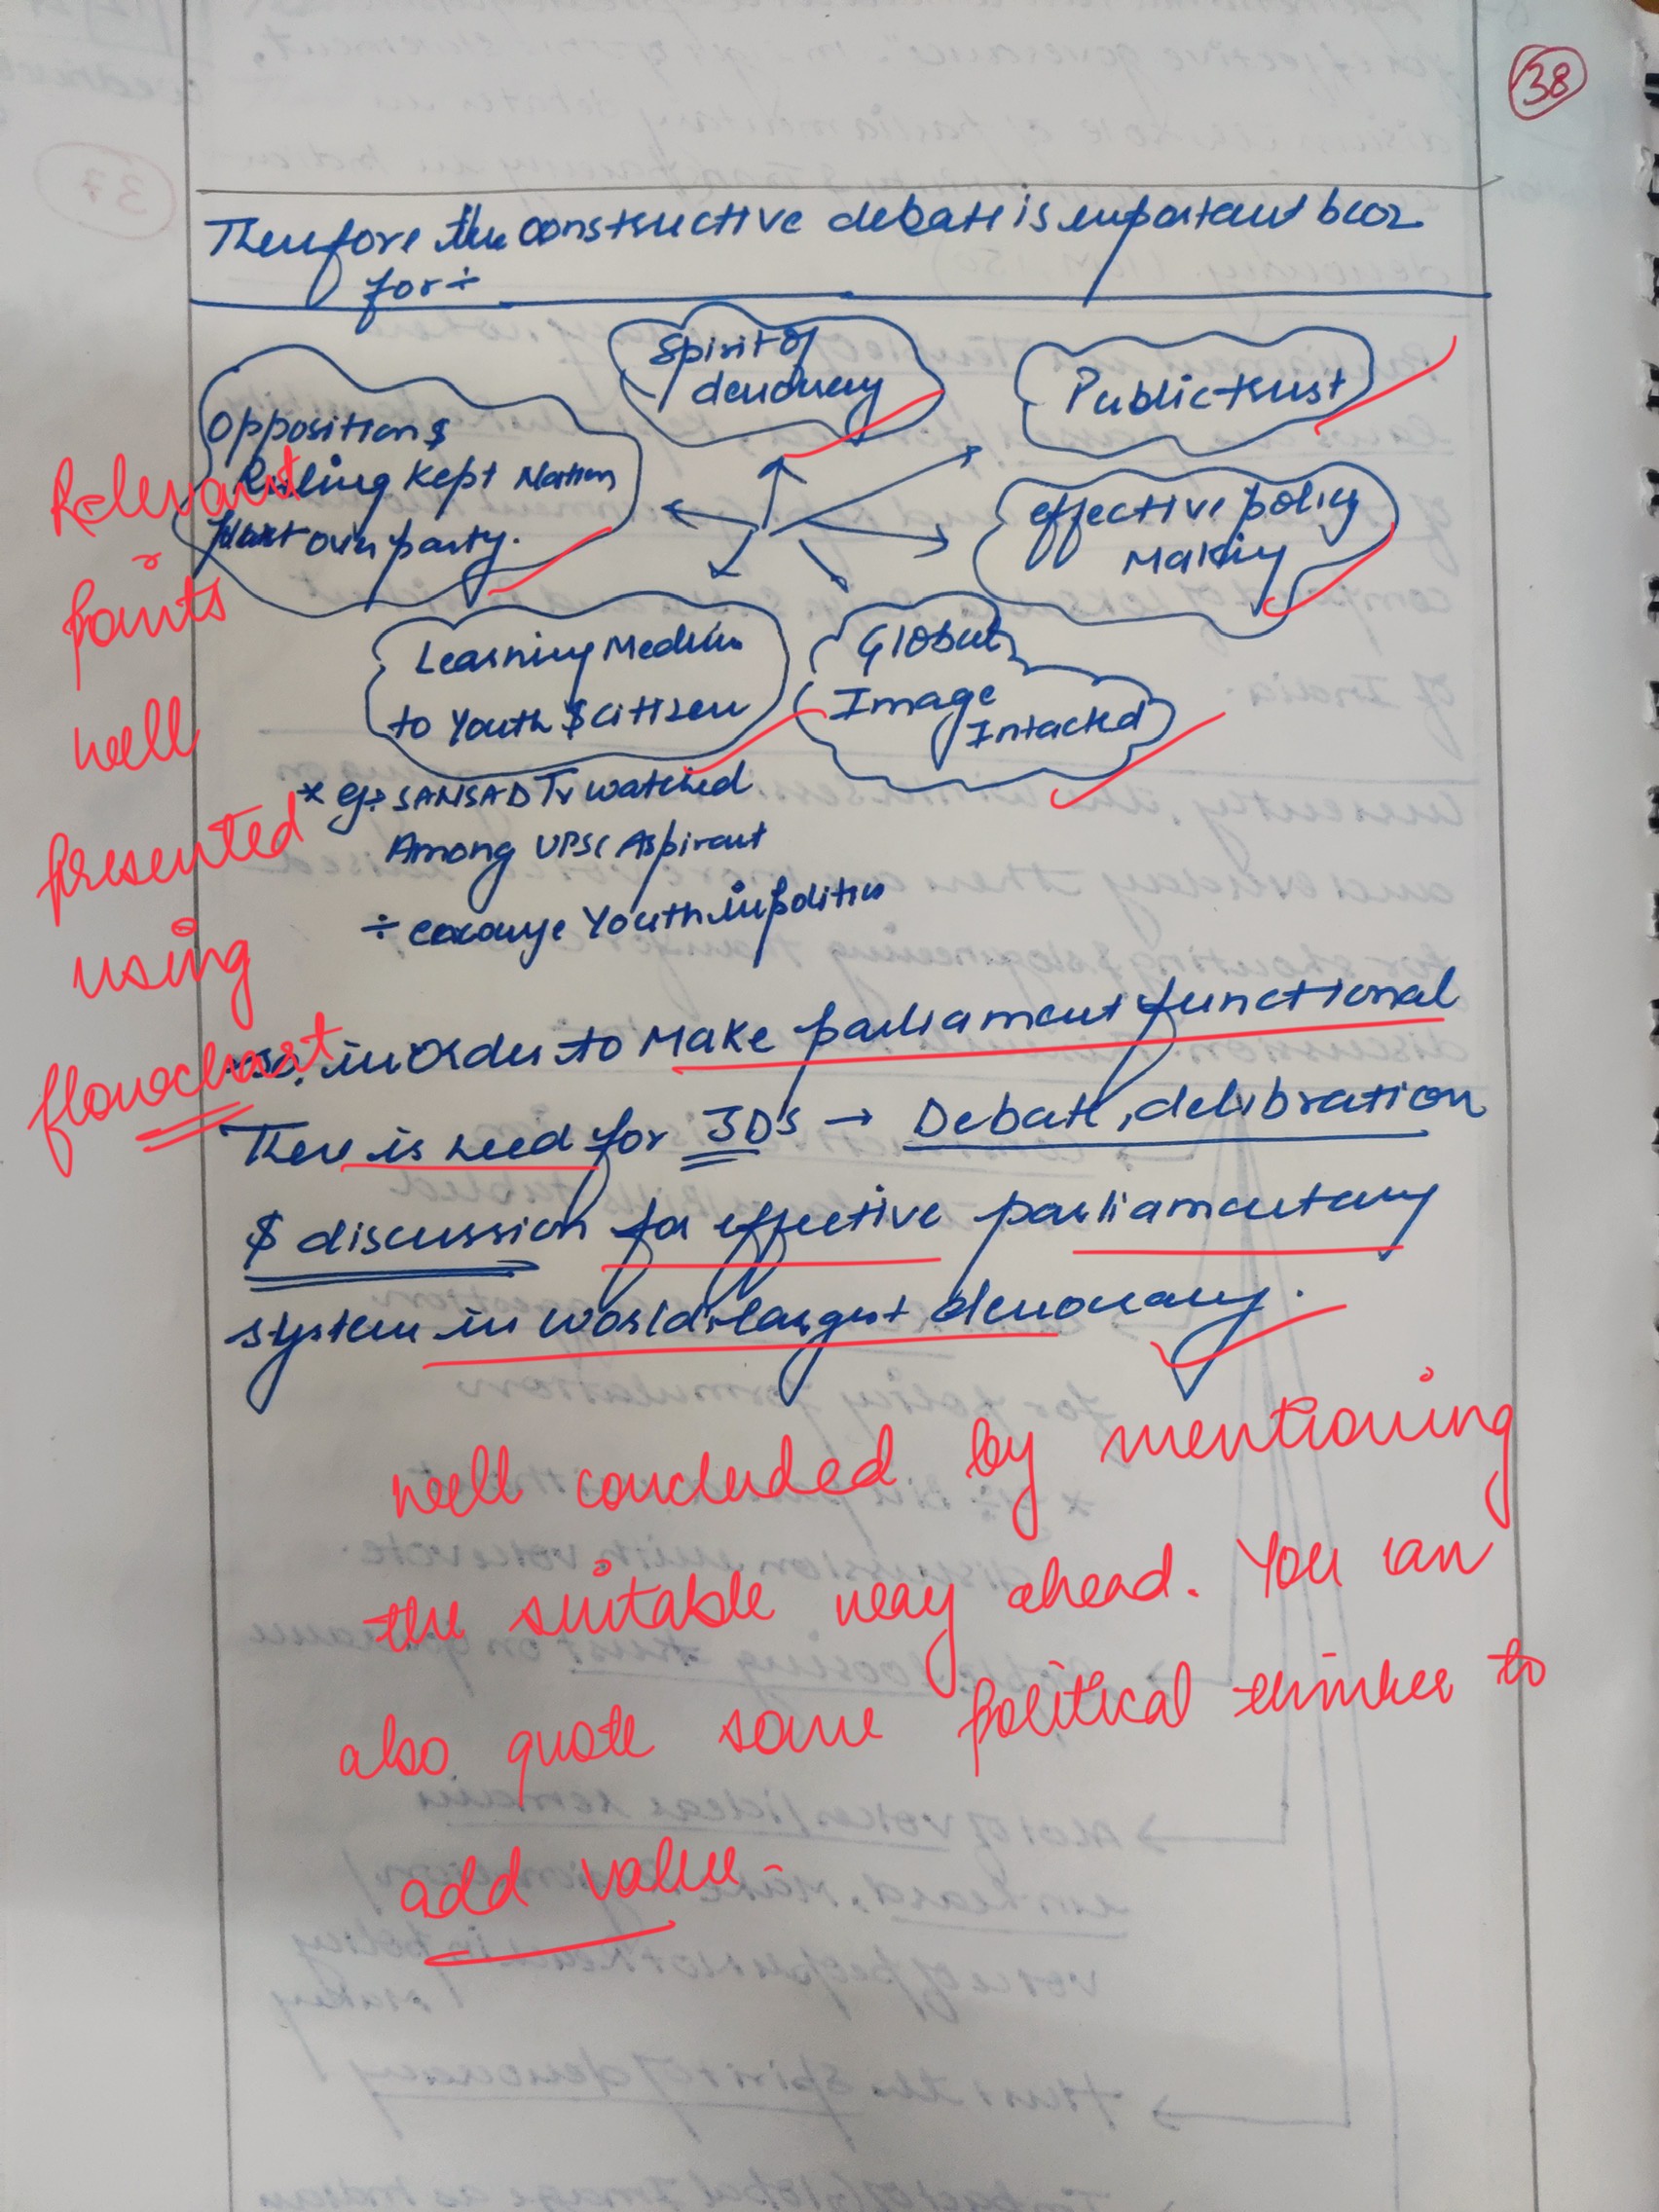 38
Therefore the constructive debate is important bcoz
for÷
Spirit of
democracy
Public trust
Opposition $
Ruling Kept Nation
over party.
effective policy
Making
Learning Medium
to Youth $ citizen
Global
Image
Intacted
* eg:- SANSAD TV watched
Among UPSC Aspirant
÷ Youth in politics
Relevant
points
well
presented
using
flowchart
So, in order to Make parliament functional
There is need for 3D's → Debate, delibration
$ discussion for effective parliamentary
system in world's largest democracy.
well concluded by mentioning
the suitable way ahead. You can
also quote some political thinker to
add value.